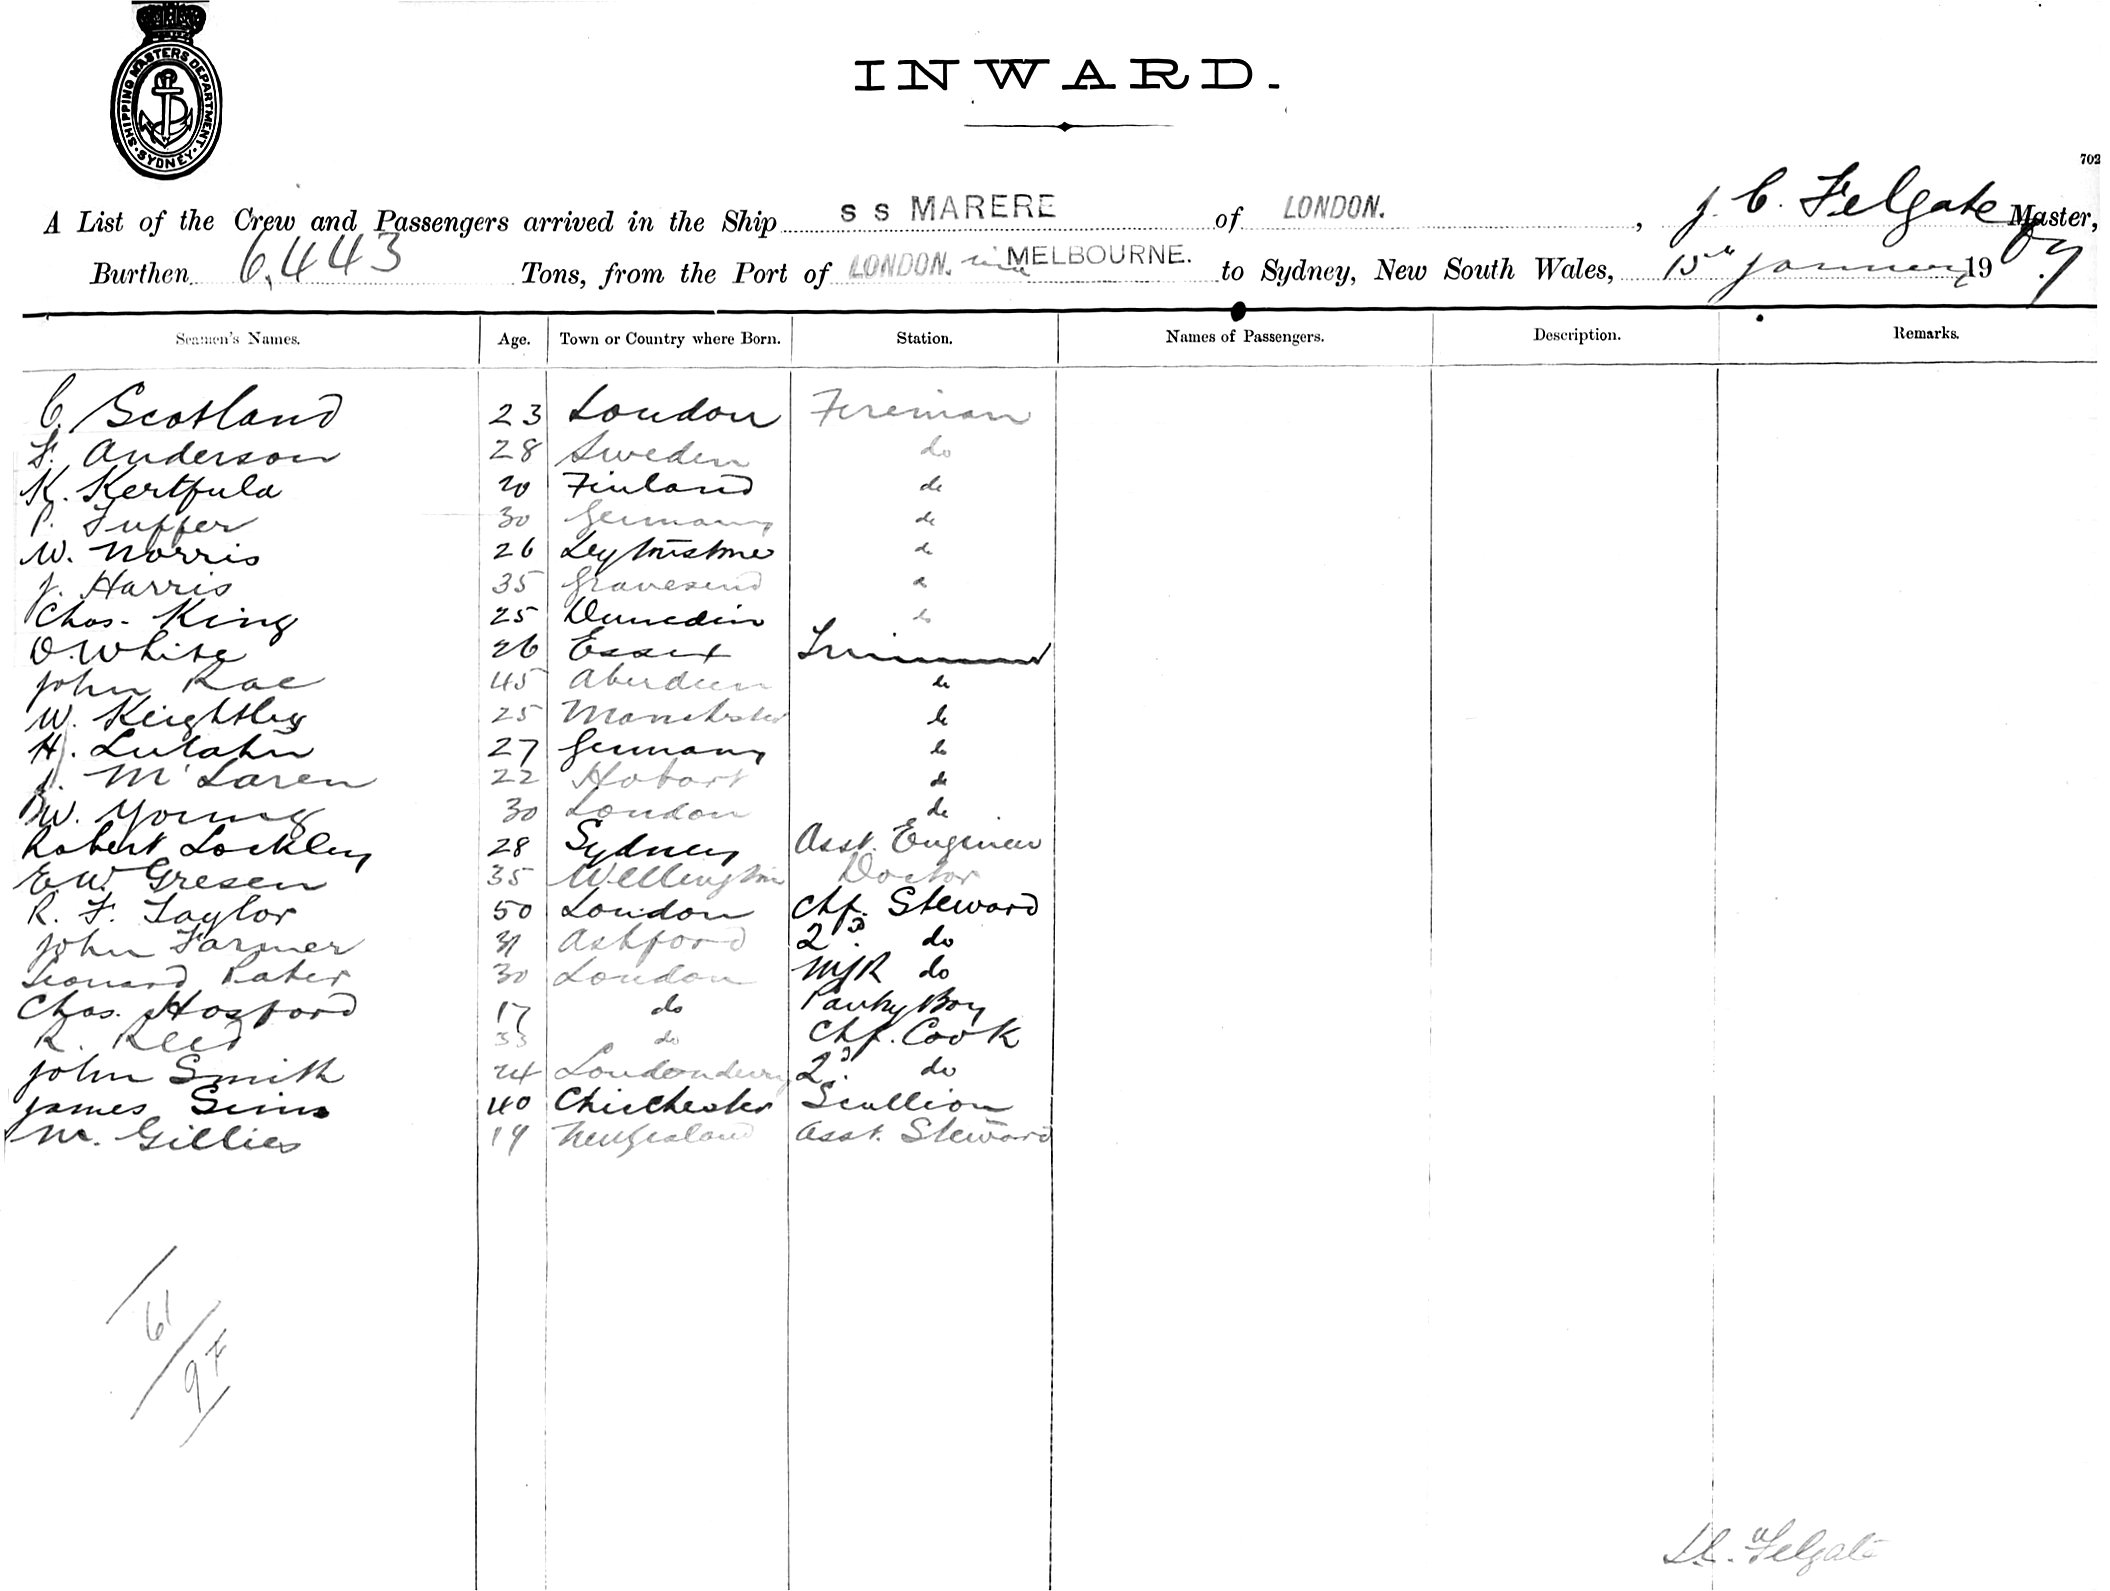 SHIPPING MASTERS DEPARTMENT · SYDNEY ·
INWARD.
702
A List of the Crew and Passengers arrived in the Ship S S MARERE of LONDON. , J. C. Felgate Master,
Burthen 6,443 Tons, from the Port of LONDON. via MELBOURNE. to Sydney, New South Wales, 15th January 1907
Seamen's Names. Age. Town or Country where Born. Station. Names of Passengers. Description. Remarks.
C. Scotland 23 London Fireman
F. Anderson 28 Sweden do
K. Kertfula 20 Finland do
P. Tuffer 30 Germany do
W. Norris 26 Leytonstone do
J. Harris 35 Gravesend do
Chas. King 25 Dunedin do
O. White 26 Essex Trimmer
John Rae 45 Aberdeen do
W. Keightley 25 Manchester do
H. Lutahn 27 Germany do
McLaren 22 Hobart do
W. Young 30 London do
Robert Lockley 28 Sydney Asst. Engineer
E. W. Gresen 35 Wellington Doctor
R. F. Taylor 50 London Chf. Steward
John Farmer 31 Ashford 2d. do
Leonard Pater 30 London do
Chas. Hosford 17 do Pantry Boy
R. Reed 33 do Chf. Cook
John Smith 24 Londonderry 2d. do
James Sims 40 Chichester Scullion
M. Gillies 19 New Zealand Asst. Steward
61
97
Felgate